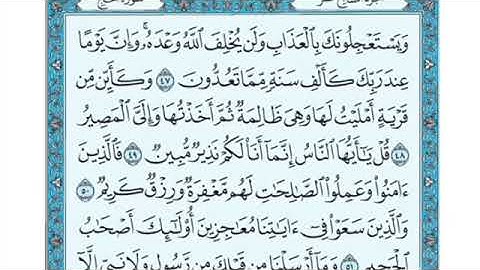 وَيَسْتَعْجِلُونَكَ بِالْعَذَابِ وَلَن يُخْلِفَ اللَّهُ وَعْدَهُ ۚ وَإِنَّ يَوْمًا
عِندَ رَبِّكَ كَأَلْفِ سَنَةٍ مِّمَّا تَعُدُّونَ ٤٧ وَكَأَيِّن مِّن
قَرْيَةٍ أَمْلَيْتُ لَهَا وَهِيَ ظَالِمَةٌ ثُمَّ أَخَذْتُهَا وَإِلَيَّ الْمَصِيرُ
٤٨ قُلْ يَٰٓأَيُّهَا النَّاسُ إِنَّمَا أَنَا۠ لَكُمْ نَذِيرٌ مُّبِينٌ ٤٩ فَالَّذِينَ
ءَامَنُوا۟ وَعَمِلُوا۟ الصَّٰلِحَٰتِ لَهُم مَّغْفِرَةٌ وَرِزْقٌ كَرِيمٌ ٥٠
وَالَّذِينَ سَعَوْا۟ فِىٓ ءَايَٰتِنَا مُعَٰجِزِينَ أُو۟لَٰٓئِكَ أَصْحَٰبُ
الْجَحِيمِ ٥١ وَمَآ أَرْسَلْنَا مِن قَبْلِكَ مِن رَّسُولٍ وَلَا نَبِىٍّ إِلَّآ